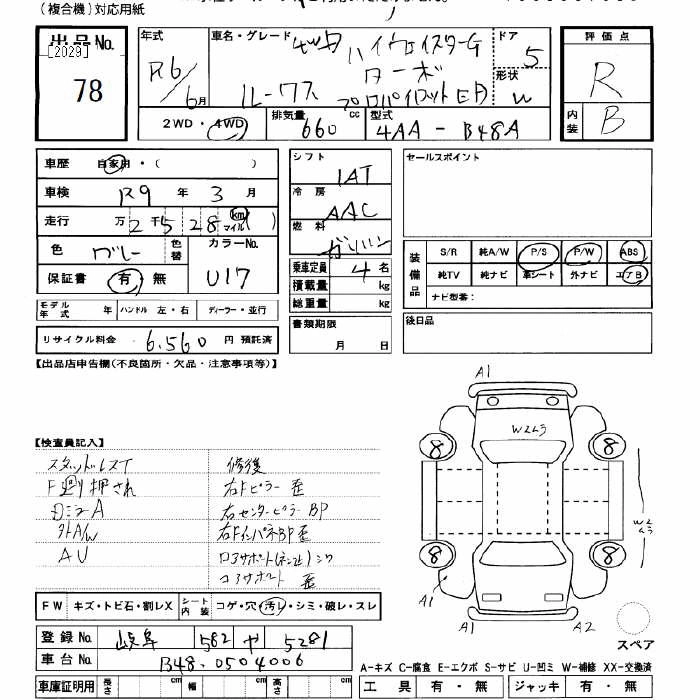 (複合機)対応用紙
出品No.
[2029]
78
年式
R6/6月
車名・グレード
4WD ハイウェイスターG
ターボ
ルークス
プロパイロットED
ドア
5
形状
W
評価点
R
内装
B
2WD・4WD
排気量
660cc
型式
4AA - B48A
車歴 自家用・( )
車検 R9年 3月
走行 万2千528 km マイル( )
色 グレー 色替
カラーNo. U17
保証書 有・無
モデル年式 年 ハンドル 左・右 ディーラー・並行
リサイクル料金 6,560円 預託済
シフト IAT
冷房 AAC
燃料 ガソリン
乗車定員 4名
積載量 kg
総重量 kg
書類期限 月 日
セールスポイント
装備品 S/R 純A/W P/S P/W ABS
純TV 純ナビ 革シート 外ナビ エアB
ナビ型番:
後日品
【出品店申告欄(不良箇所・欠品・注意事項等)】
【検査員記入】
スタッドレスT
F廻り押され
ロミラーA
外A/W
AU
修復
右Fピラー歪
右センターピラーBP
右FインパネBP歪
コアサポート 歪
FW キズ・トビ石・割レX シート内装 コゲ・穴・汚レ・シミ・破レ・スレ
登録No. 岐阜 582 や 5281
車台No. B48-0504006
車庫証明用 長さ cm 幅 cm 高さ cm
A1
W2ﾑﾗ
8
8
W2ﾑﾗ
8
8
A1
A1
A2
スペア
A−キズ C−腐食 E−エクボ S−サビ U−凹ミ W−補修 XX−交換済
工具 有・無 ジャッキ 有・無